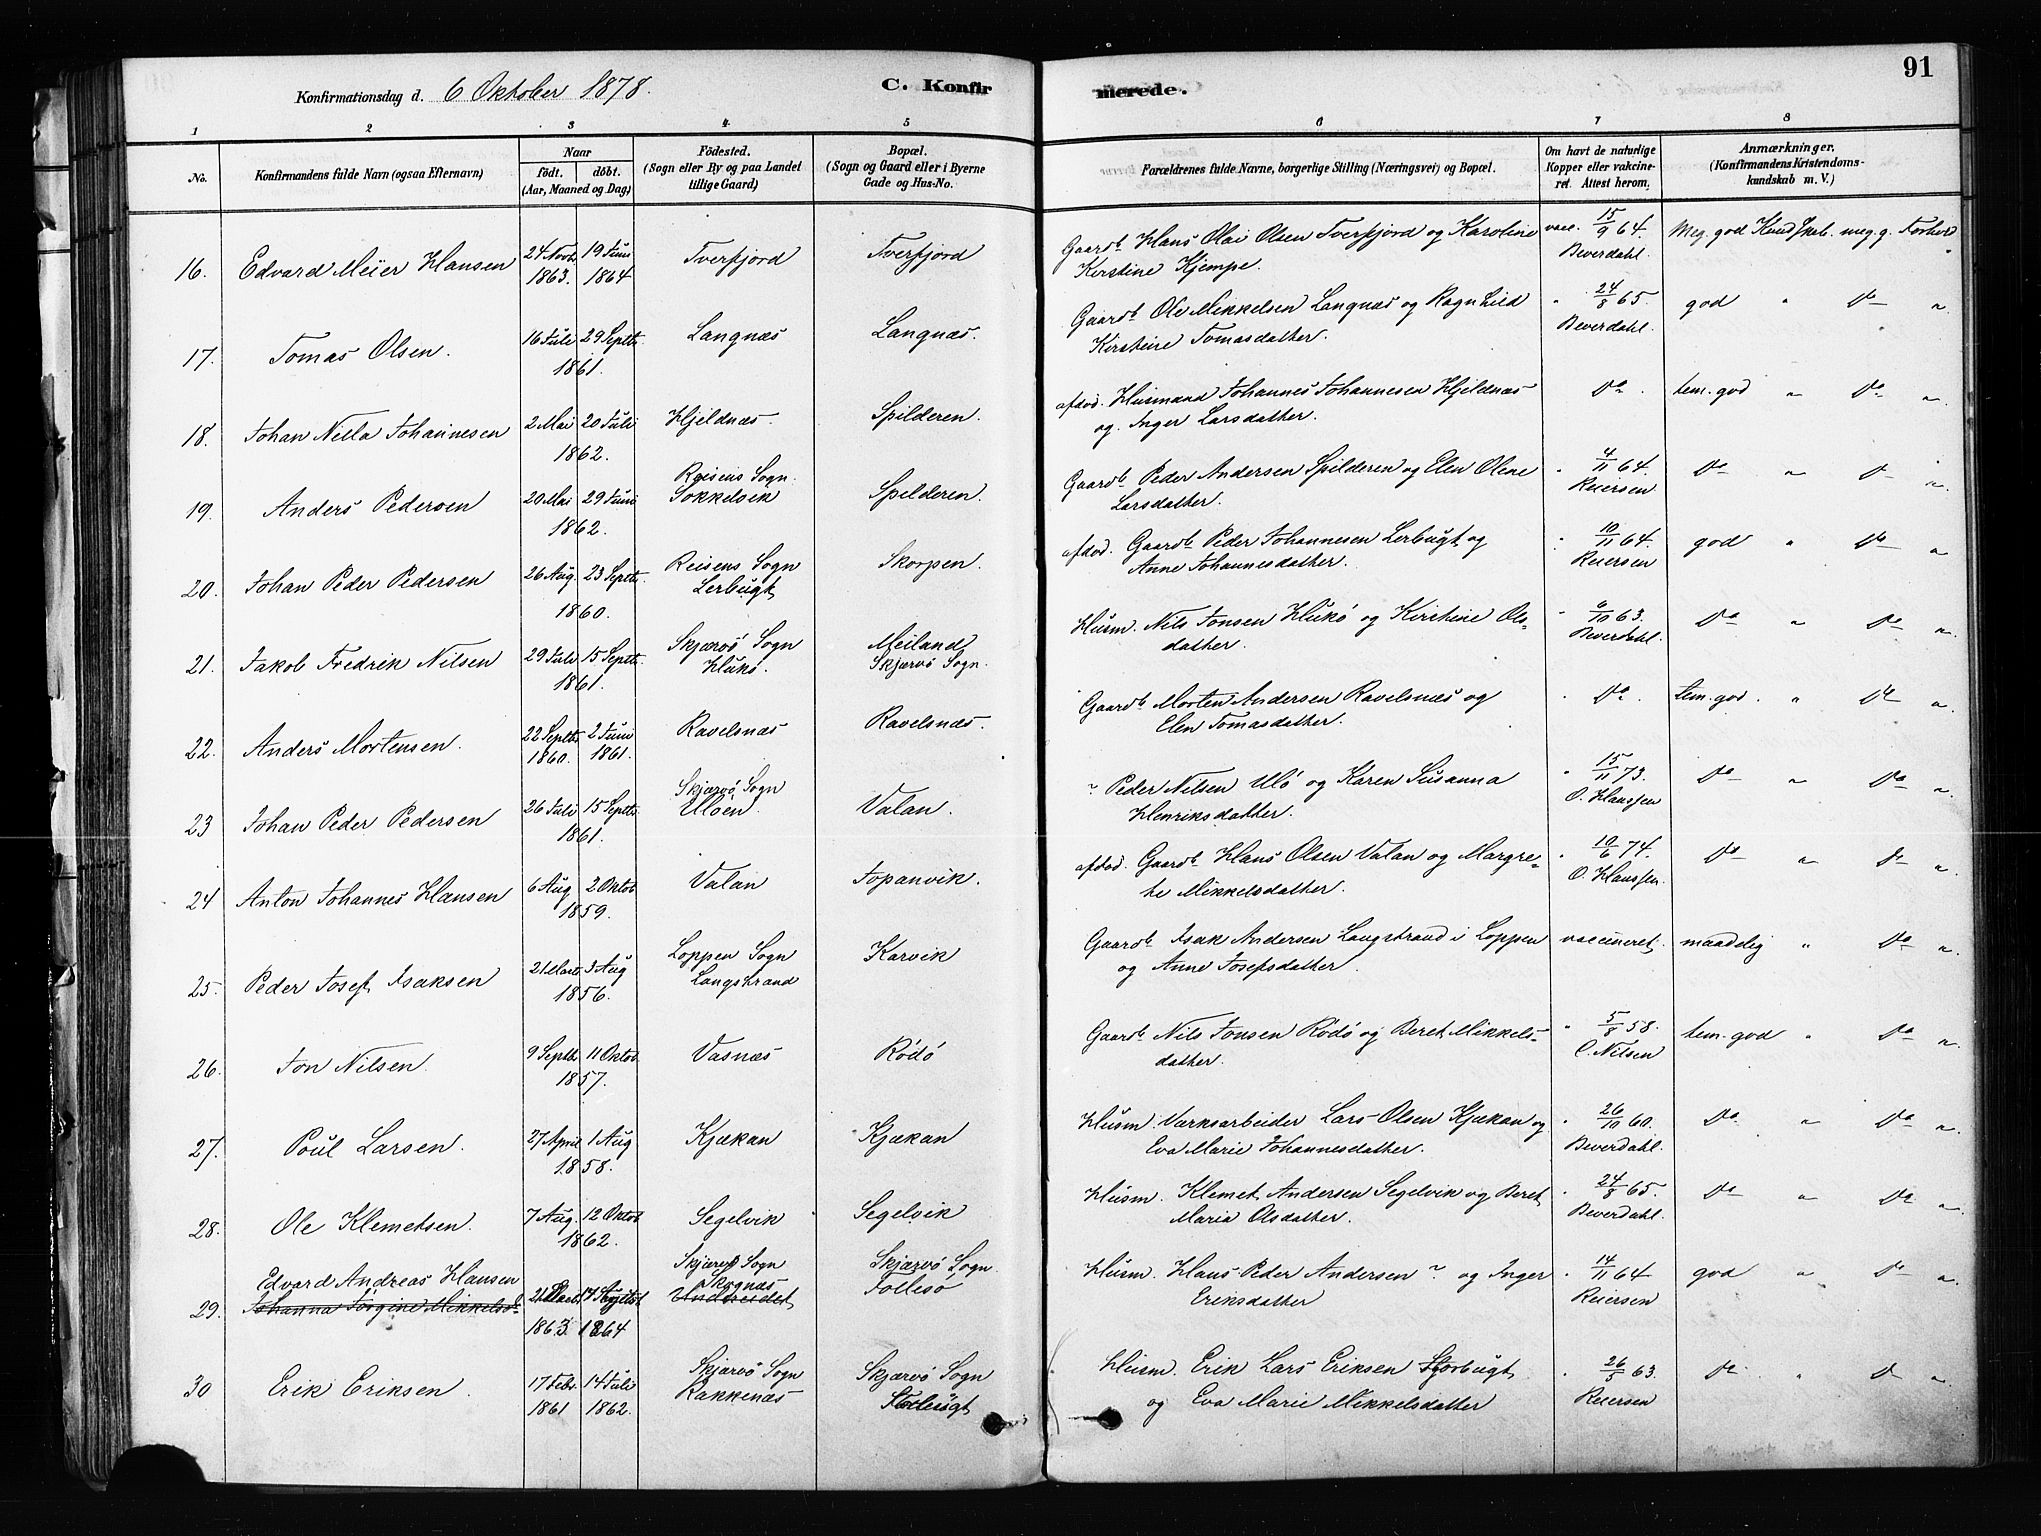 91
Konfirmationsdag d. 6 Oktober 1878.
C. Konfirmerede.
1 2 3 4 5 6 7 8
No.
Konfirmandens fulde Navn (ogsaa Efternavn)
Naar
födt. döbt.
(Aar, Maaned og Dag)
Födested.
(Sogn eller By og paa Landet
tillige Gaard)
Bopæl.
(Sogn og Gaard eller i Byerne
Gade og Hus-No.
Forældrenes fulde Navne, borgerlige Stilling (Næringsvei) og Bopæl.
Om havt de naturlige
Kopper eller vakcine-
ret. Attest herom.
Anmærkninger.
(Konfirmandens Kristendoms-
kundskab m. V.)
16. Edvard Meier Hansen 24 Novb. 1863. 19 Juni 1864 Tverfjord Tverfjord
Gaardb. Hans Olai Olsen Tverfjord og Karoline
Kirstine Kjempe.
vacc. 15/9 64. Beverdahl.
Meg. god Kundskab. meg. g. Forhold
17. Tomas Olsen. 16 Juli 29 Septb. 1861. Langnæs Langnæs.
Gaardb. Ole Mikkelsen Langnæs og Ragnhild
Kirstine Tomasdatter.
" 24/8 65. Beverdahl.
god " Do "
18. Johan Nilla Johannesen 2 Mai 20 Juli 1862. Hjeldnæs. Spilderen.
afdöd. Husmand Johannes Johannesen Hjeldnæs
og Inger Larsdatter.
Do.
tem. god " Do "
19. Anders Pedersen 20 Mai 29 Juni 1862. Reisens Sogn. Sokkelvik Spilderen.
Gaardb. Peder Andersen Spilderen og Elen Olene
Larsdatter.
" 4/11 64. Reiersen
Do " Do "
20. Johan Peder Pedersen 26 Aug. 23 Septb. 1860. Reisens Sogn Lerbugt Skorpen.
afdöd. Gaardb. Peder Johannesen Lerbugt og
Anne Johannesdatter.
" 10/11 64. Reiersen
god " Do "
21. Jakob Fredrik Nilsen 29 Juli 15 Septb. 1861. Skjærvö Sogn Hukö. Meiland Skjærvö Sogn.
Husm. Nils Jonsen Hukö og Kirstine Ols-
datter.
" 6/10 63. Beverdahl.
Do " Do "
22. Anders Mortensen. 22 Septb. 1860. 2 Juni 1861. Ravelsnæs Ravelsnæs.
Gaardb. Morten Andersen Ravelsnæs og
Elen Tomasdatter.
" Do.
tem. god. " Do "
23 Johan Peder Pedersen 26 Juli 15 Septb. 1861. Skjærvö Sogn Ulöen. Valan.
" Peder Nilsen Ulö og Karen Susanna
Henriksdatter.
" 15/11 73. O. Hanssen
Do " Do "
24 Anton Johannes Hansen 6 Aug 2 Oktob 1859. Valan Topanvik.
afdöd. Gaardb. Hans Olsen Valan og Margre-
the Mikkelsdatter.
" 10/6 74. O. Hanssen.
Do " Do "
25. Peder Josef Isaksen 21 Marts 3 Aug 1856. Loppen Sogn Langstrand Karvik
Gaardb. Isak Andersen Langstrand i Loppen
og Anne Josefsdatter.
vaccineret.
maadelig " Do "
26. Jon Nilsen. 9 Septb. 11 Oktob. 1857. Vasnæs Rödö
Gaardb. Nils Jonsen Rödö og Beret Mikkels-
datter.
" 5/8 58. C. Nilsen
tem. god " Do "
27. Poul Larsen. 27 April 1 Aug 1858. Kjækan Kjækan
Husm. Værksarbeider Lars Olsen Kjækan og
Eva Marie Johannesdatter.
" 26/10 60. Beverdahl.
Do. " Do "
28. Ole Klemetsen. 7 Aug. 12 Oktob 1862. Segelvik Segelvik
Husm. Klemet Andersen Segelvik og Beret
Maria Olsdatter.
" 24/8 65. Beverdahl.
Do " Do "
29. Edvard Andreas Hansen
Johanna Jörgine Mikkelsd. 1863. 1864 Skjærvö Sogn Skognæs Skjærvö Sogn.
Husm. Hans Peder Andersen " og Inger
Eriksdatter
" 14/11 64 Reiersen
god " Do "
30 Erik Eriksen. 17 Febr. 1861 14 Juli 1862. Skjærvö Sogn Rakkenæs Skjærvö Sogn
Husm. Erik Lars Eriksen
og Eva Marie Mikkelsdatter
" 26/5 63. Reiersen
Do. " Do "